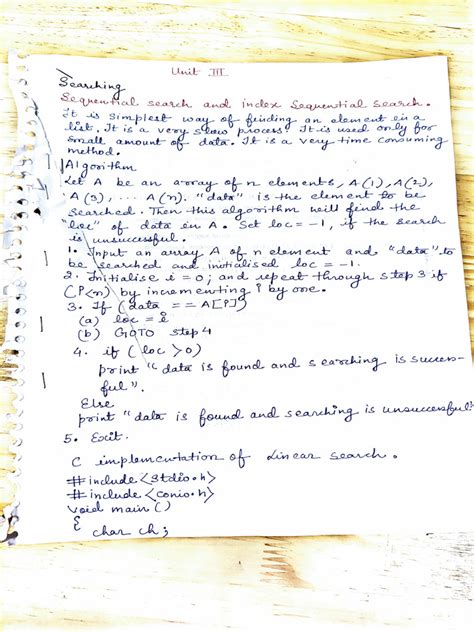 Unit III
Searching
Sequential search and index Sequential Search.
It is simplest way of finding an element in a
list. It is a very slow process. It is used only for
small amount of data. It is a very time consuming
method.
Algorithm
Let A be an array of n elements, A(1), A(2),
A(3), ... A(n). "data" is the element to be
searched. Then this algorithm will find the
"loc" of data in A. Set loc = -1, if the search
is unsuccessful.
1. Input an array A of n element and "data" to
be searched and initialised loc = -1.
2. Initialise i = 0; and repeat through step 3 if
(P<n) by incrementing i by one.
3. If (data == A[P])
(a) loc = i
(b) GOTO step 4
4. if (loc > 0)
print "data is found and searching is succes-
ful".
Else
print "data is found and searching is unsuccessful"
5. Exit.
C implementation of Linear search.
#include <stdio.h>
#include <conio.h>
void main ()
{
char ch;